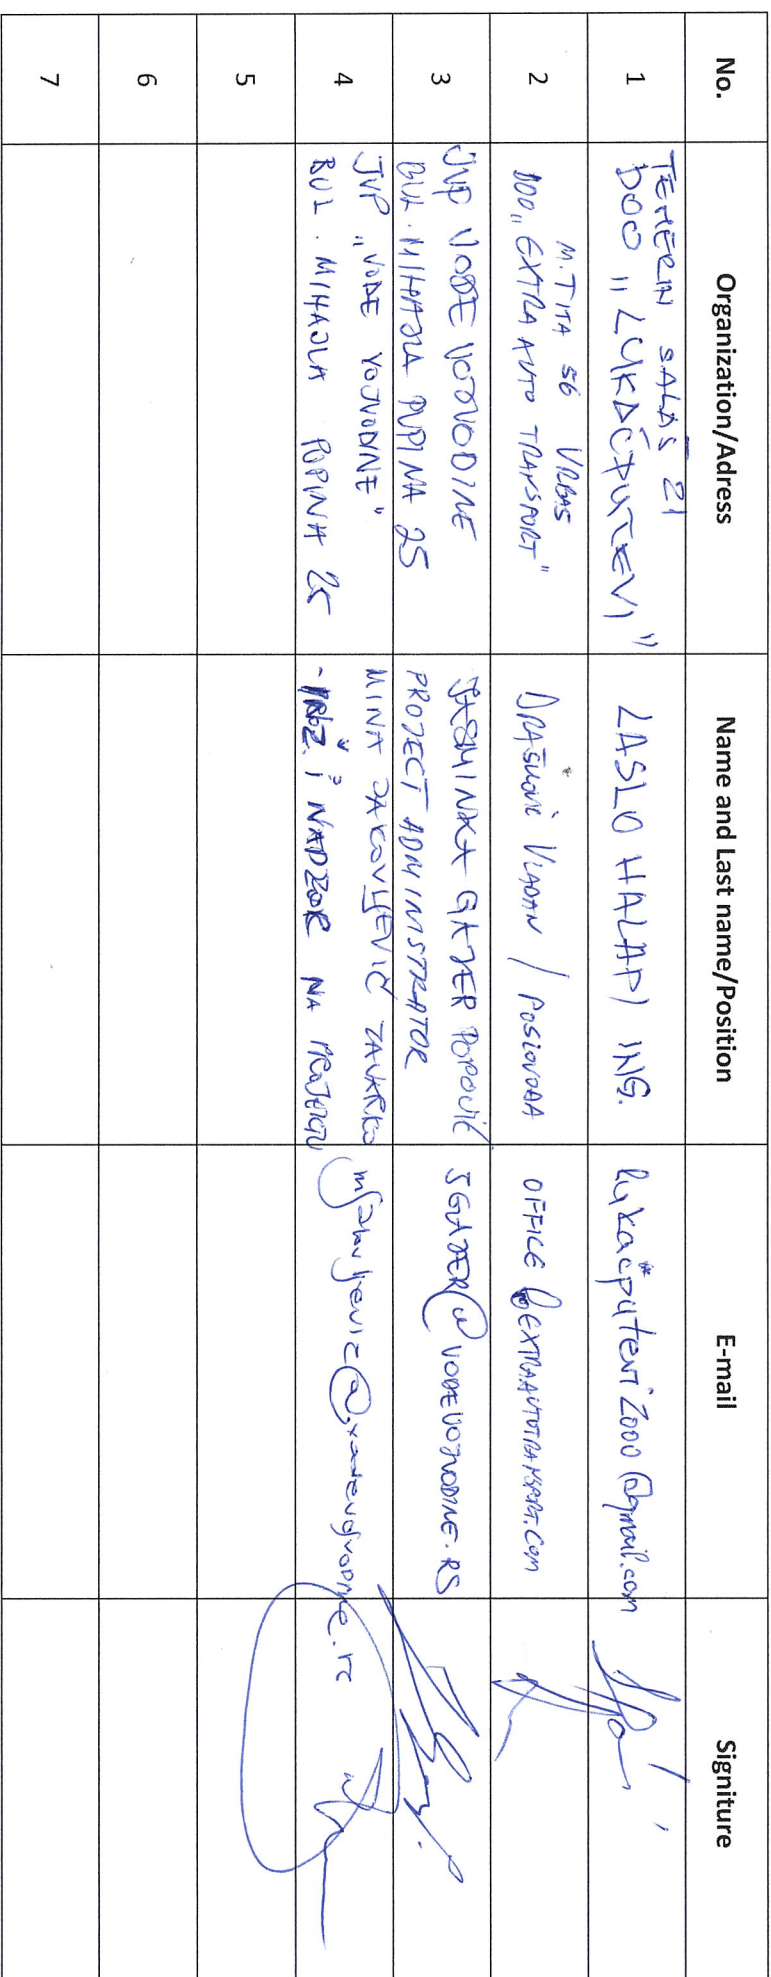 No. Organization/Adress Name and Last name/Position E-mail Signiture
1
TEMERIN SALAŠ 21
DOO „LUKAČPUTEVI"
LASLO HALAPI ING.
lukačputevi2000@gmail.com
2
M. TITA 56 VRBAS
DOO „EXTRA AUTO TRANSPORT"
DRAŠKOVIĆ VLADAN / POSLOVOĐA
OFFICE@EXTRAAUTOTRANSPORT.COM
3
JVP VODE VOJVODINE
BUL. MIHAJLA PUPINA 25
JASMINKA GAJER POPOVIĆ
PROJECT ADMINISTRATOR
JGAJER@VODEVOJVODINE.RS
4
JVP „VODE VOJVODINE"
BUL. MIHAJLA PUPINA 25
MINA JAKOVLJEVIĆ
I NADZOR NA PROJEKTU
5
6
7